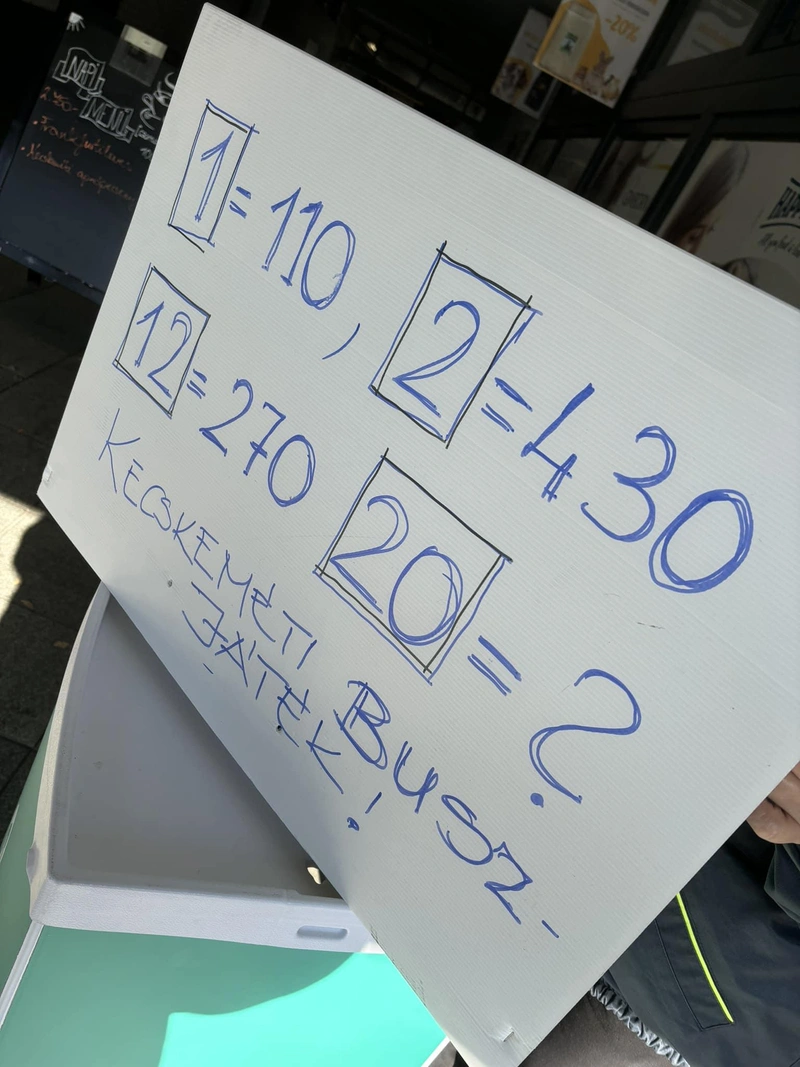 1 = 110, 2 = 430
12 = 270 20 = ?
KECSKEMÉTI BUSZ-
JÁTÉK!
NAPI
MENÜ
-20%